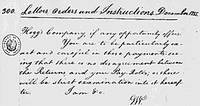 302 Letters Orders and Instructions December 1755
Hogg's Company if any oppertunity offer.
You are to be particularly ex-
act and careful in these payments: see-
ing that there is no disagreement between
the Returns and your Pay-Roles; as there
will be strict examination into it hereaf-
ter. I am &c.
GW